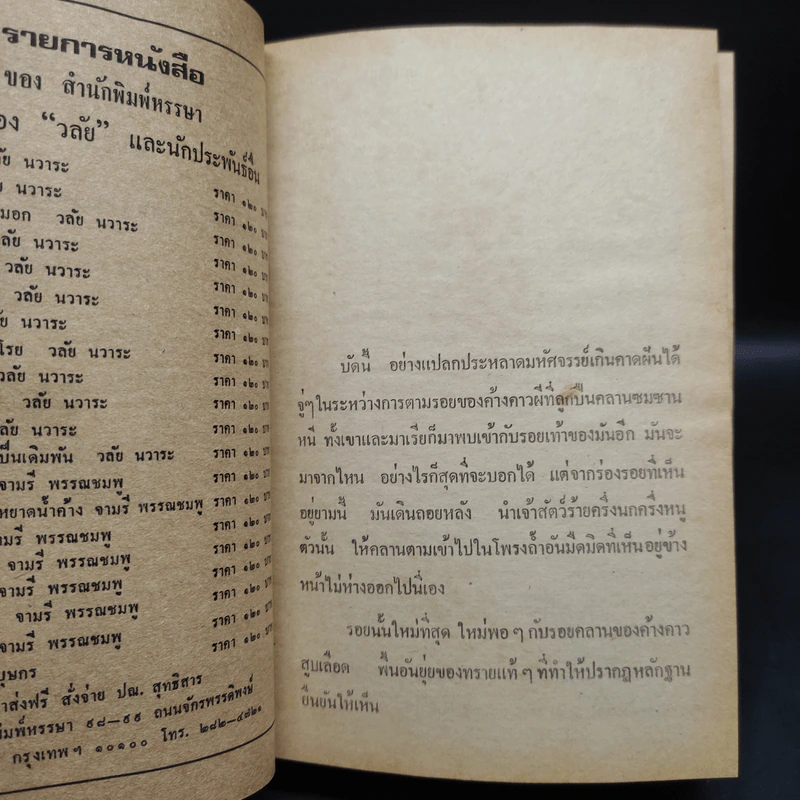 รายการหนังสือ
ของ สำนักพิมพ์หรรษา
"วลัย" และนักประพันธ์อื่น
นวาระ ราคา ๑๒๐
นวาระ ราคา ๑๒๐
วลัย นวาระ ราคา ๑๒๐
นวาระ ราคา ๑๒๐
วลัย นวาระ ราคา ๑๒๐
วลัย นวาระ ราคา ๑๒๐
นวาระ ราคา ๑๒๐
วลัย นวาระ ราคา ๑๒๐
วลัย นวาระ ราคา ๑๒๐
วลัย นวาระ ราคา ๑๒๐
นวาระ ราคา ๑๒๐
วลัย นวาระ ราคา ๑๒๐
จามรี พรรณชมพู ราคา ๑๒๐
หยาดน้ำค้าง จามรี พรรณชมพู ราคา ๑๒๐
พรรณชมพู ราคา ๑๒๐
จามรี พรรณชมพู ราคา ๑๒๐
จามรี พรรณชมพู ราคา ๑๒๐
จามรี พรรณชมพู ราคา ๑๒๐
จามรี พรรณชมพู ราคา ๑๒๐
ส่งฟรี สั่งจ่าย ปณ. สุทธิสาร
๙๘—๙๙ ถนนจักรพรรดิพงษ์
กรุงเทพฯ ๑๐๑๐๐ โทร. ๒๘๒—๔๘๒๑
บัดนี้ อย่างแปลกประหลาดมหัศจรรย์เกินคาดฝันได้
จู่ๆในระหว่างการตามรอยของค้างคาวผีที่ลูกปืนคลานซมซาน
หนี ทั้งเขาและมาเรียก็มาพบเข้ากับรอยเท้าของมันอีก มันจะ
มาจากไหน อย่างไรก็สุดที่จะบอกได้ แต่จากร่องรอยที่เห็น
อยู่ยามนี้ มันเดินถอยหลัง นำเจ้าสัตว์ร้ายครึ่งนกครึ่งหนู
ตัวนั้น ให้คลานตามเข้าไปในโพรงถ้ำอันมืดมิดที่เห็นอยู่ข้าง
หน้าไม่ห่างออกไปนี้เอง
รอยนั้นใหม่ที่สุด ใหม่พอๆกับรอยคลานของค้างคาว
สูบเลือด พื้นอันยุ่ยของทรายแท้ๆที่ทำให้ปรากฏหลักฐาน
ยืนยันให้เห็น